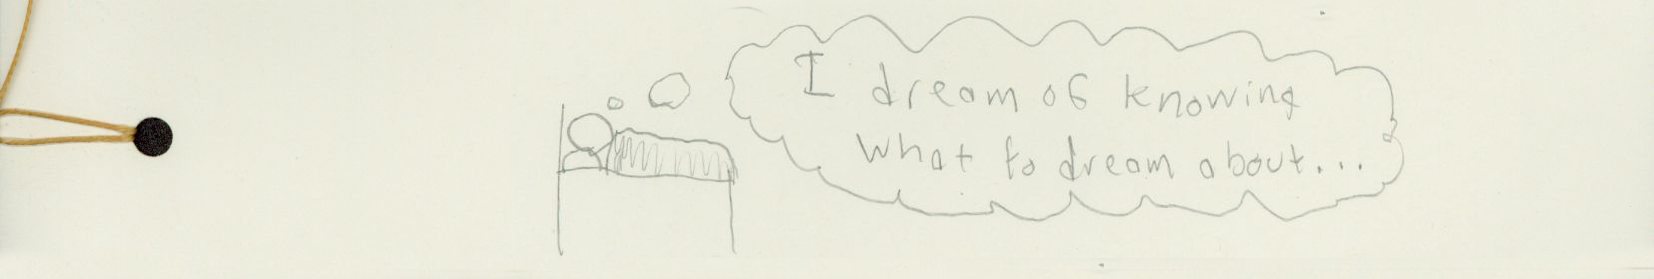 I dream of knowing
what to dream about...